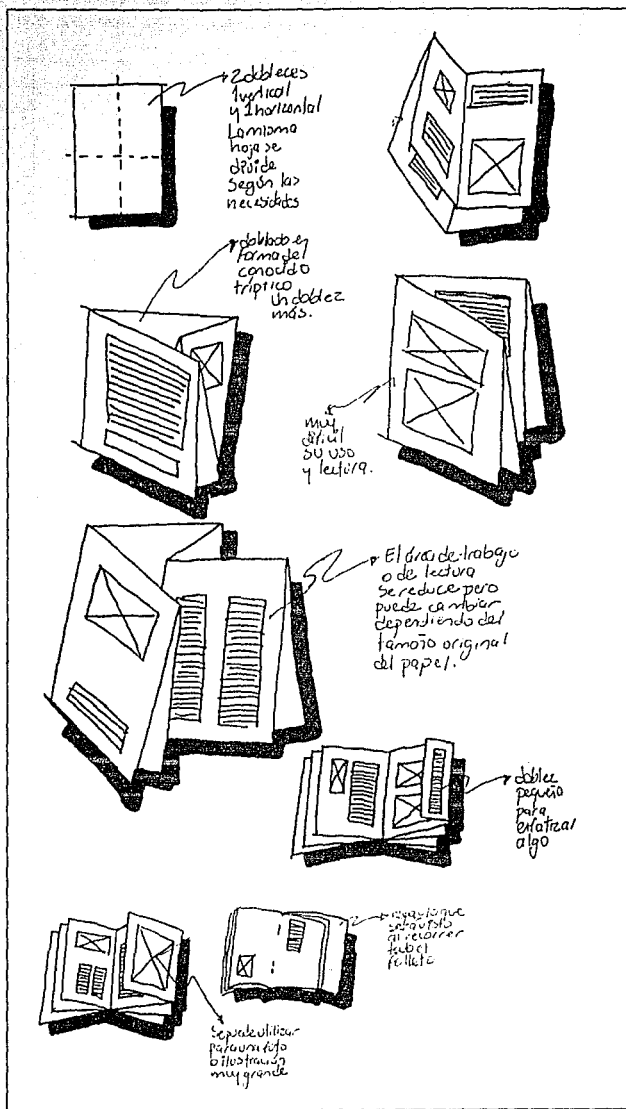 2 dobleces
1 vertical
y 1 horizontal
La misma
hoja se
divide
según las
necesidades
doblado en
forma del
conocido
tríptico
un doblez
más.
muy
difícil
su uso
y lectura.
El área de trabajo
o de lectura
se reduce pero
puede cambiar
dependiendo del
tamaño original
del papel.
doblez
pequeño
para
enfatizar
algo
que
al recorrer
todo el
folleto
Se puede utilizar
para una foto
o ilustración
muy grande